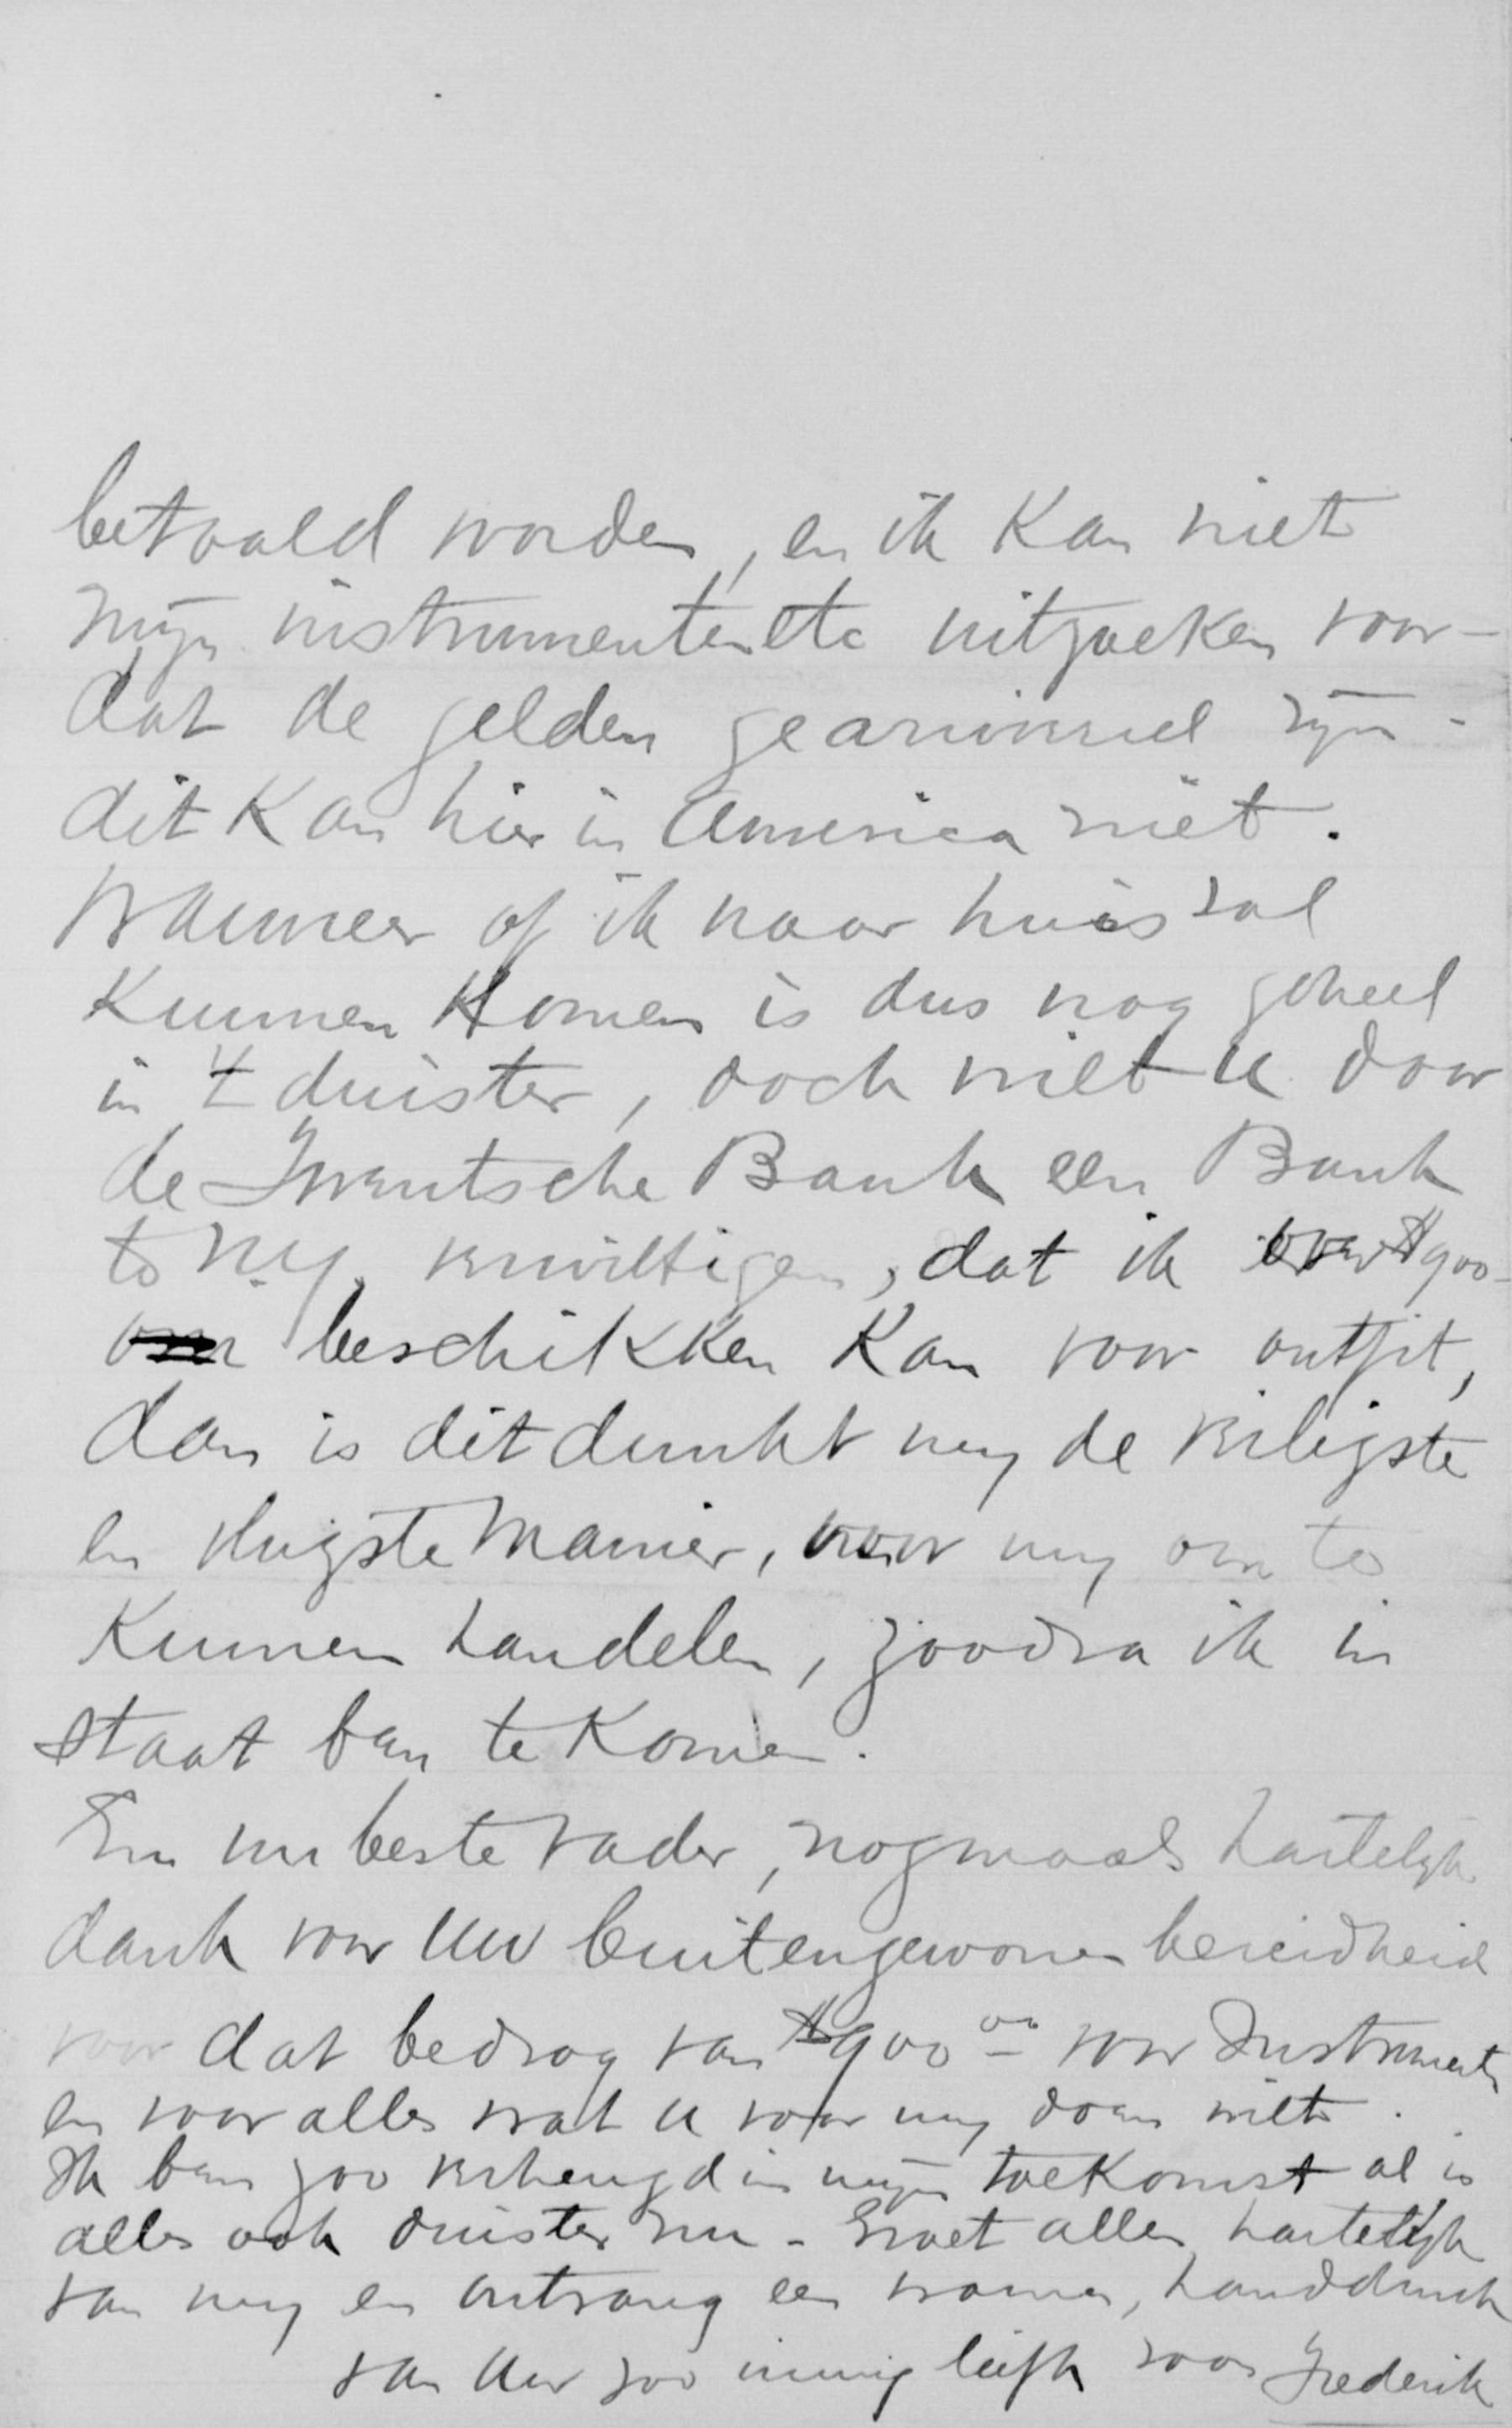 betaald worden, en ik kan niet
mijn instrumenten etc uitzoeken voor-
dat de gelden gearriveerd zijn -
dit kan hier in America niet.
Wanneer of ik naar huis zal
kunnen komen is dus nog geheel
in 't duister, doch wilt u door
de Twentsche Bank een Bank
te N.Y. machtigen, dat ik over $900-
beschikken kan voor outfit,
dan is dit dunkt my de veiligste
en vlugste manier, voor my om te
kunnen handelen, zoodra ik in
staat ben te komen.
En nu beste Vader, nogmaals hartelyk
dank voor Uw buitengewone bereidheid
voor dat bedrag van $900 00 voor Instrument
en voor alles wat u voor my doen wilt.
Ik ben zoo verheugd in mijn toekomst al is
alles ook duister nu - Groet allen hartelijk
van my en ontvang een warme, handdruk
van Uw zoo innig liefh zoon Frederik